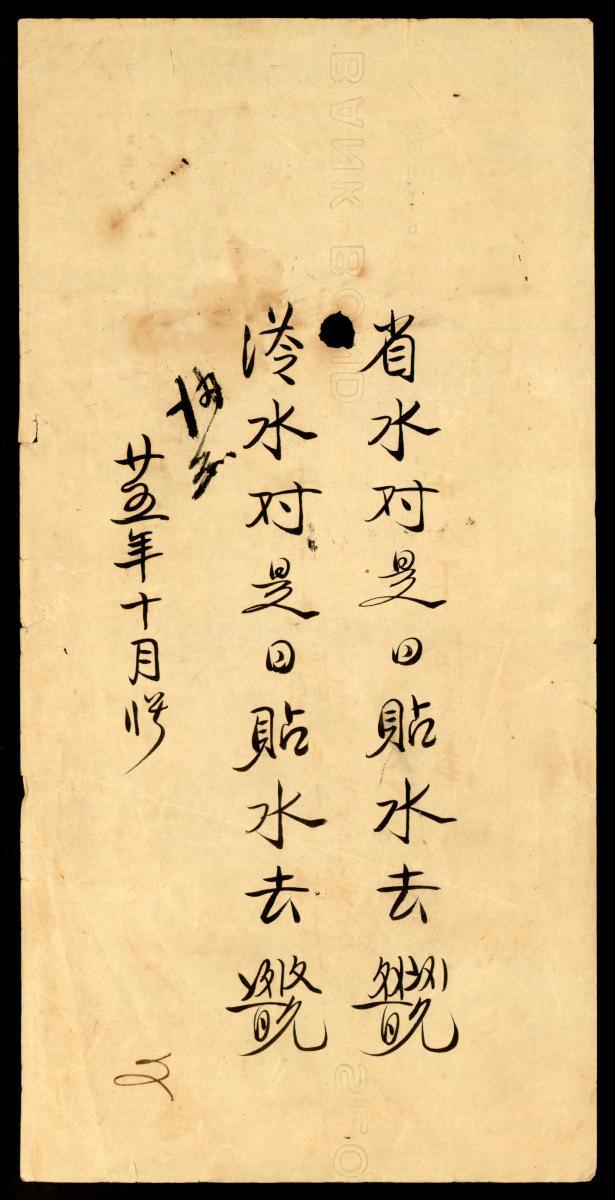 省水对是日貼水去
港水对是日貼水去
廿五年十月
BANK BOND